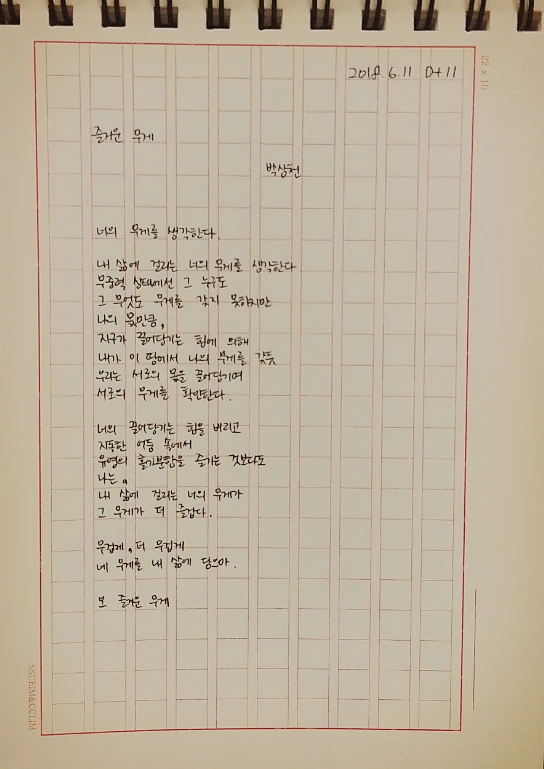 2018. 6. 11 D+11
22 x 10
즐거운 무게
박상천
너의 무게를 생각한다.
내 삶에 걸리는 너의 무게를 생각한다
무중력 상태에선 그 누구도
그 무엇도 무게를 갖지 못하지만
나의 몫만큼,
지구가 끌어당기는 힘에 의해
내가 이 땅에서 나의 무게를 갖듯
우리는 서로의 몫을 끌어당기며
서로의 무게를 확인한다.
너의 끌어당기는 힘을 버리고
지독한 어둠 속에서
유영의 홀가분함을 즐기는 것보다도
나는,
내 삶에 걸리는 너의 무게가
그 무게가 더 즐겁다.
무겁게, 더 무겁게
네 무게를 내 삶에 담으마.
오 즐거운 무게
SSUEIM&CCLIM